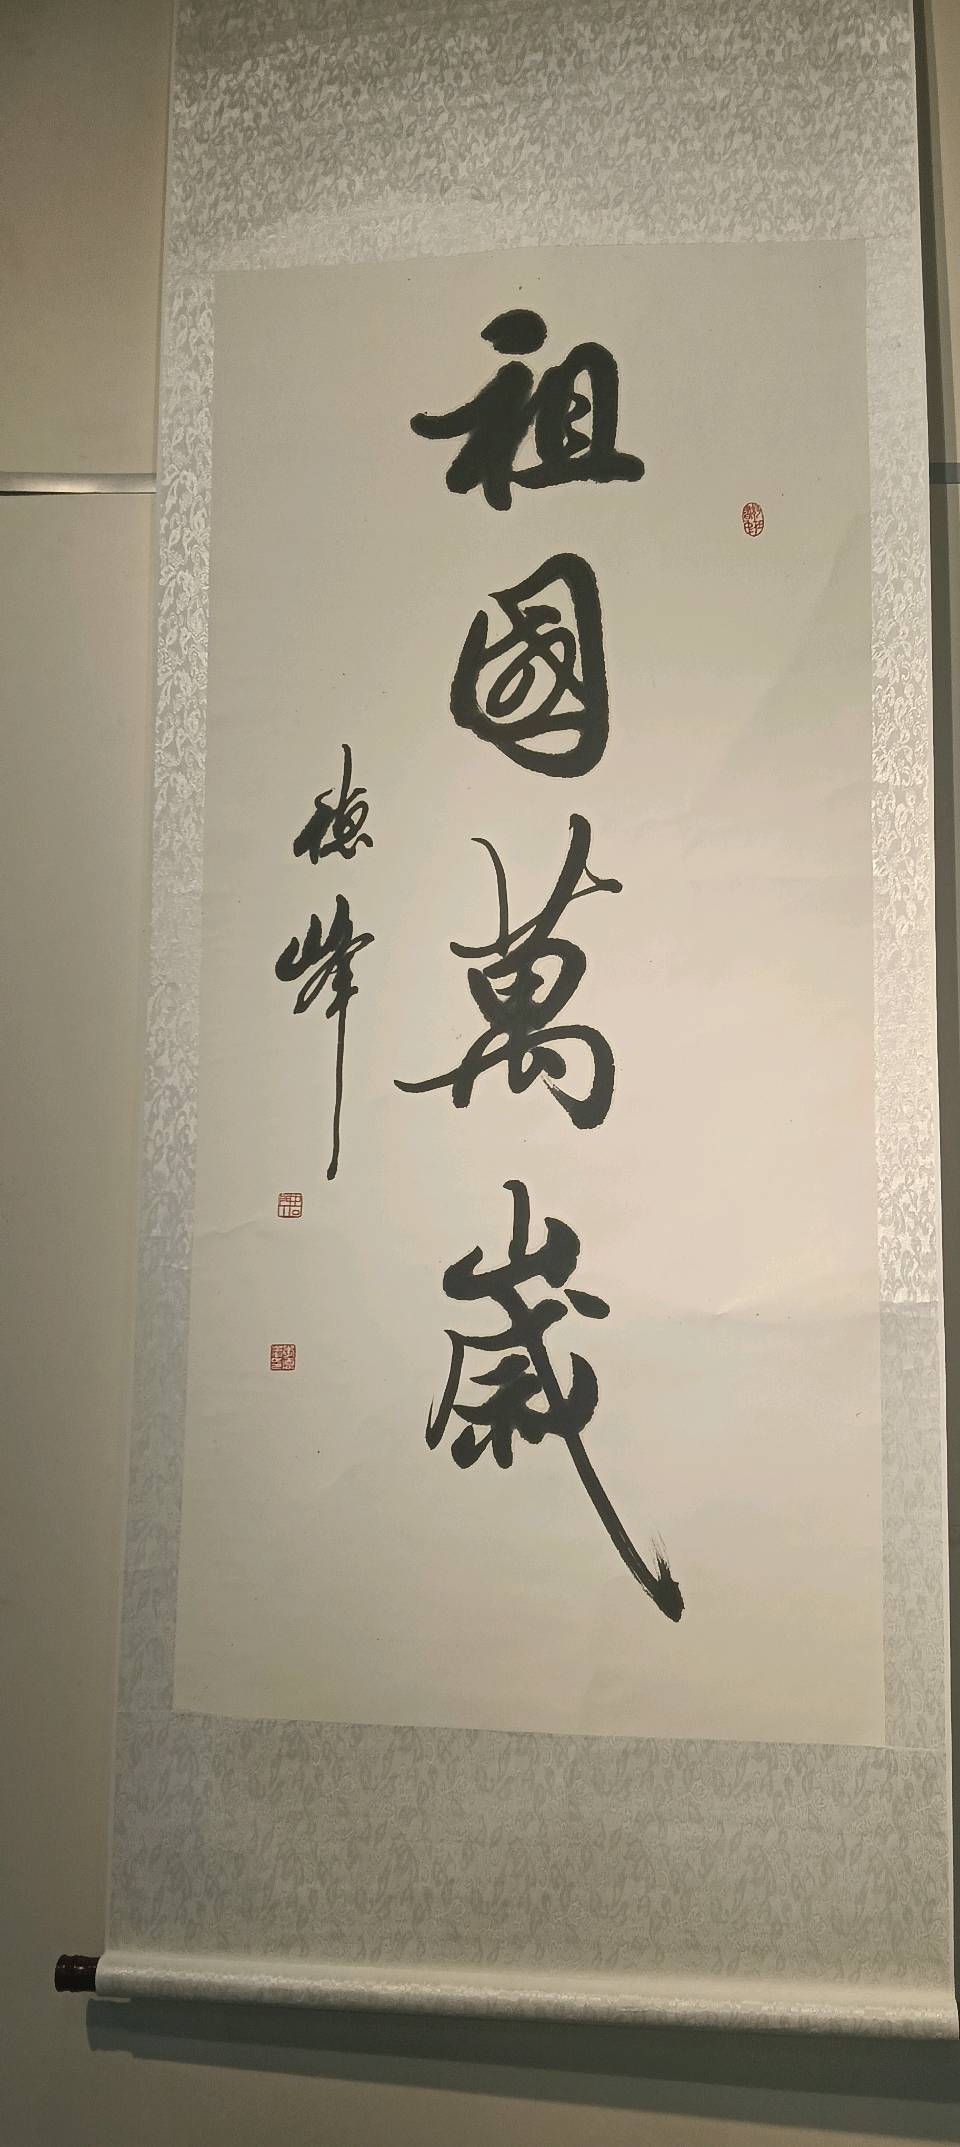 祖國萬歲
德峰